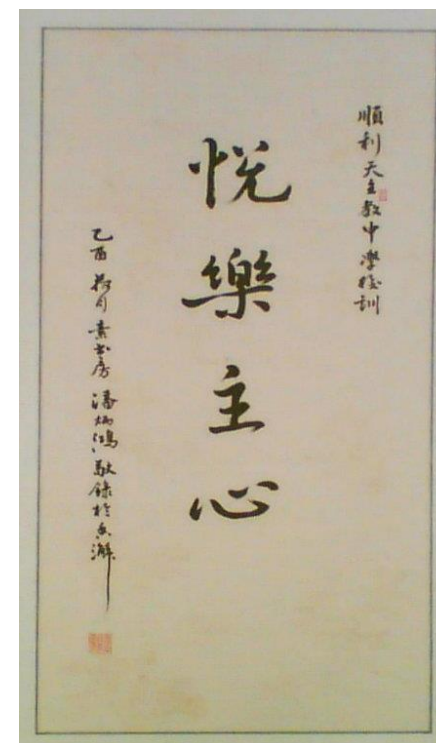 順利天主教中學校訓
悅樂主心
乙酉荷月素書房潘炳鴻敬錄於香灘